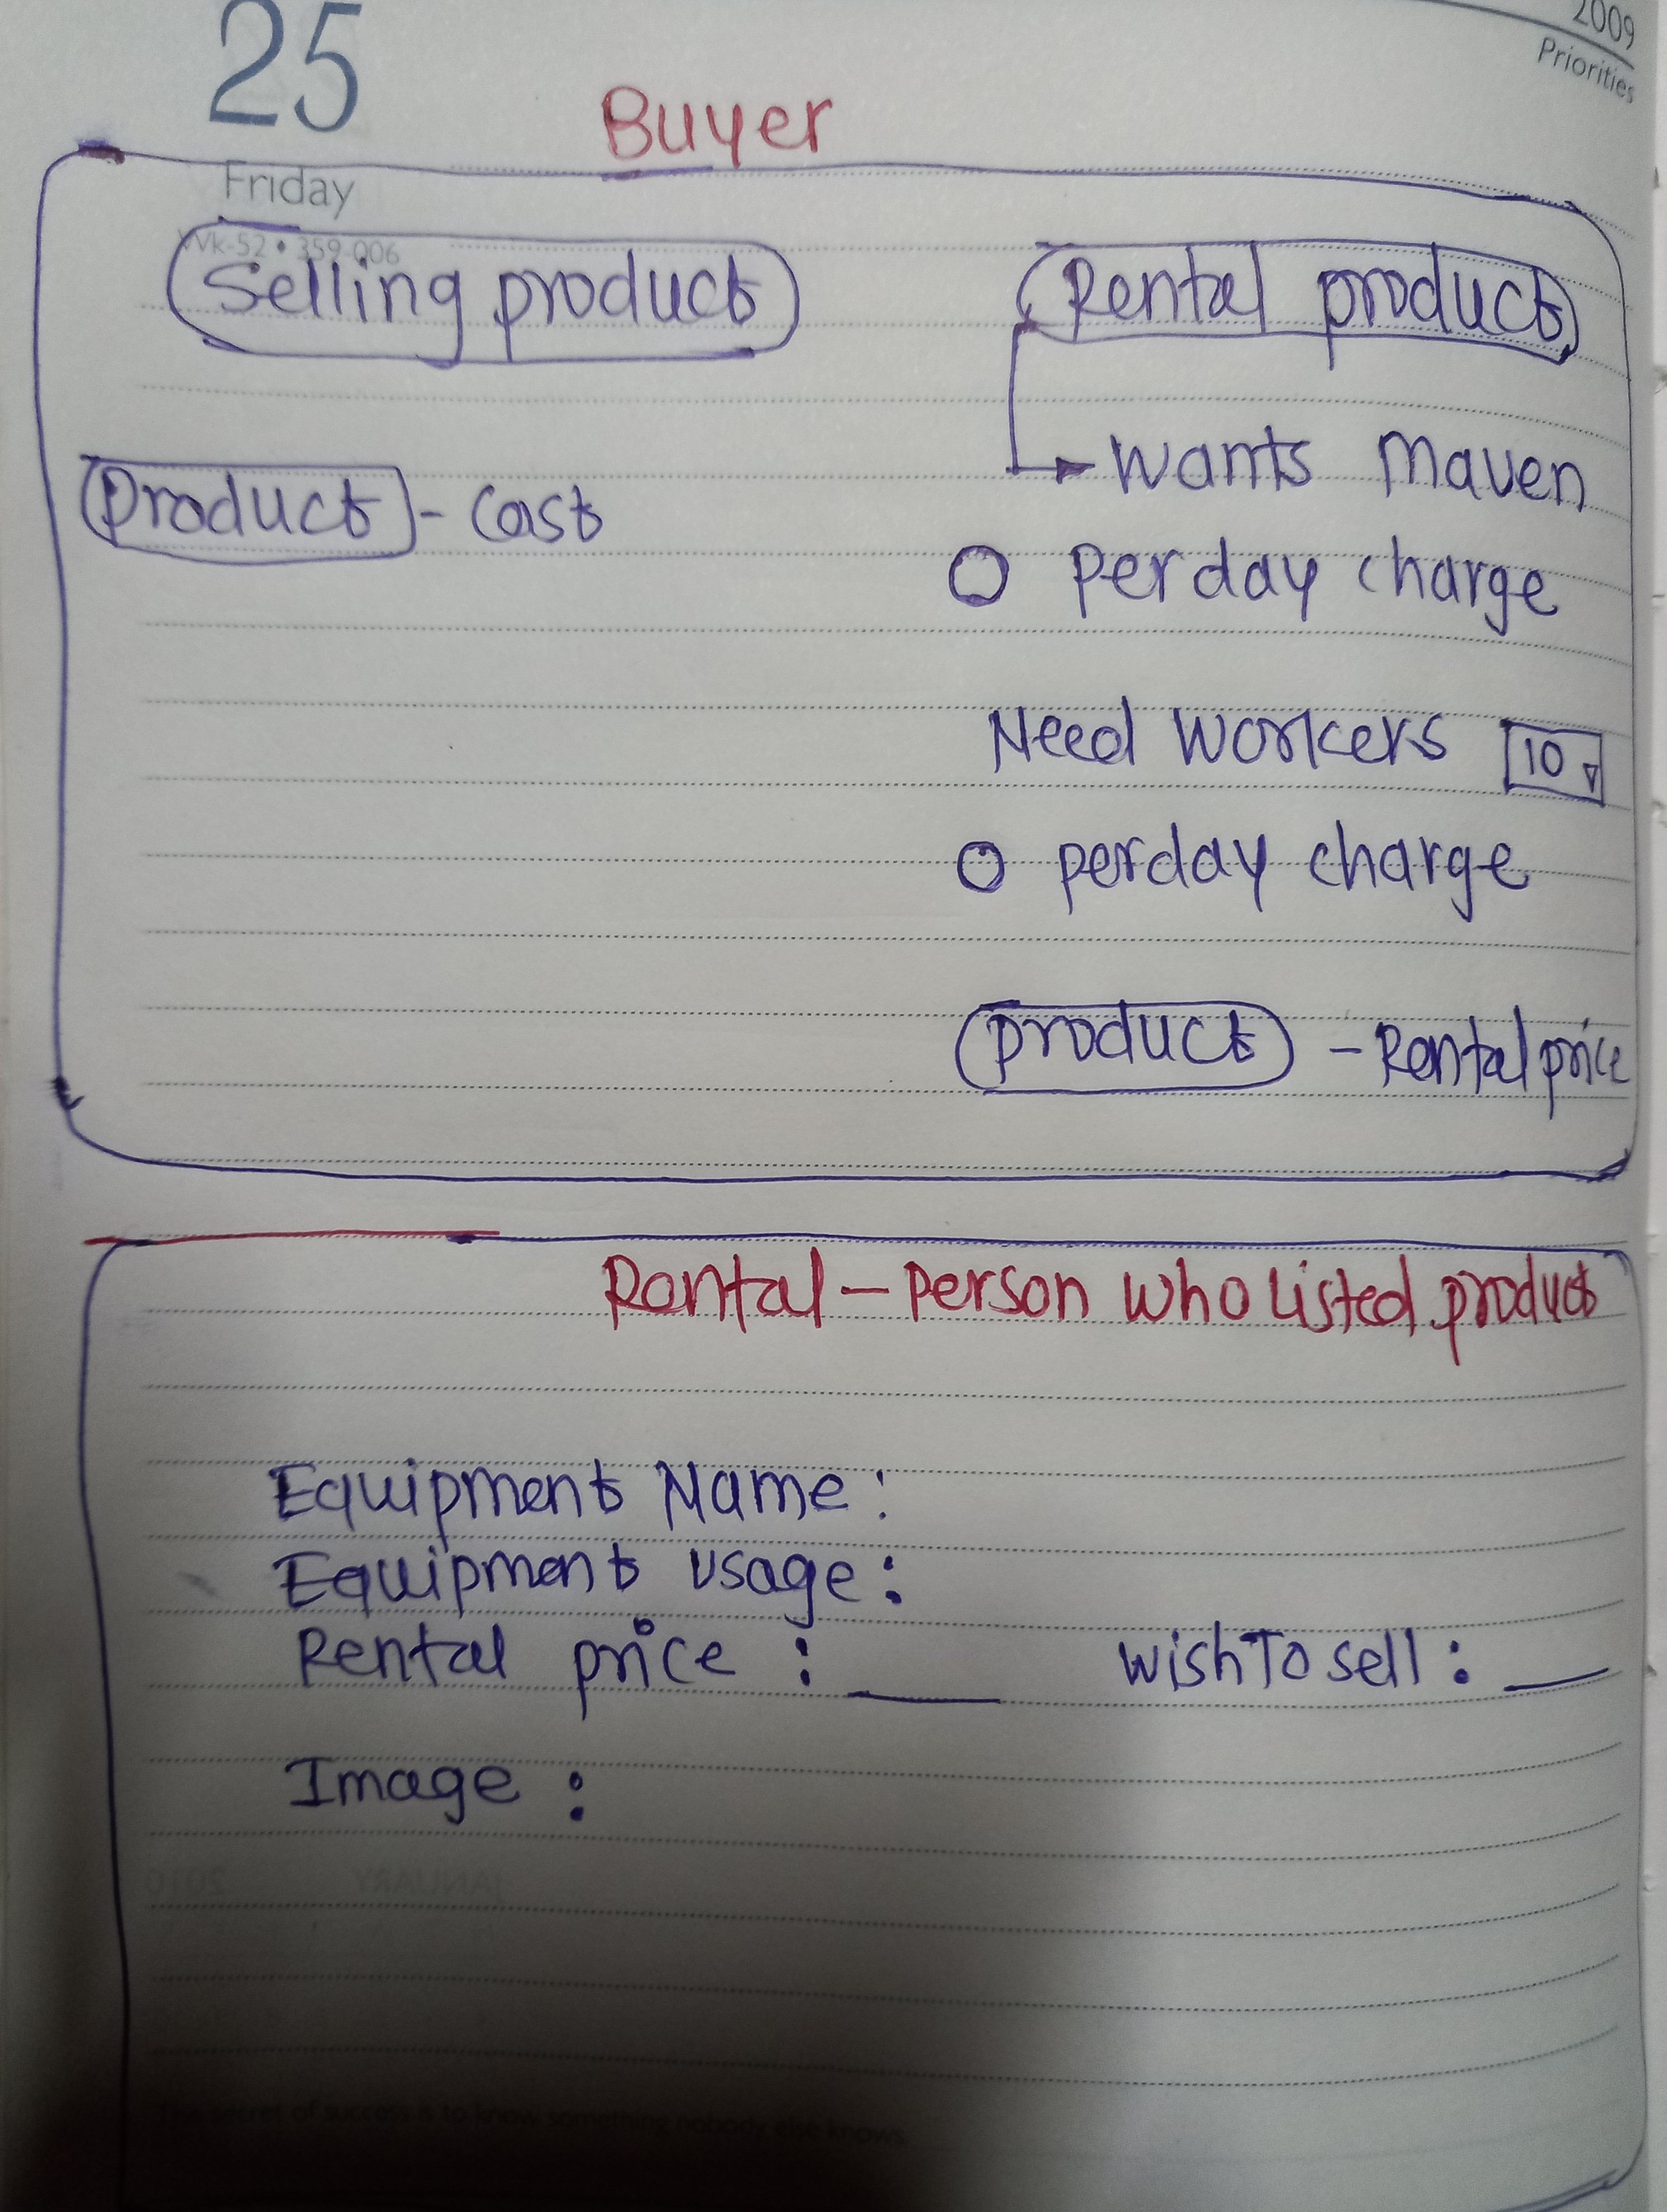 25
2009
Priorities
Buyer
Friday
Wk-52 • 359-006
Selling product
Rental product
Wants Maven
Product - Cost
Perday charge
Need Workers 10
perday charge
product - Rental price
Rental - Person Who Listed product
Equipment Name :
Equipment Usage :
Rental price : ____ WishTo sell : __
Image :
The secret of success is to know something nobody else knows